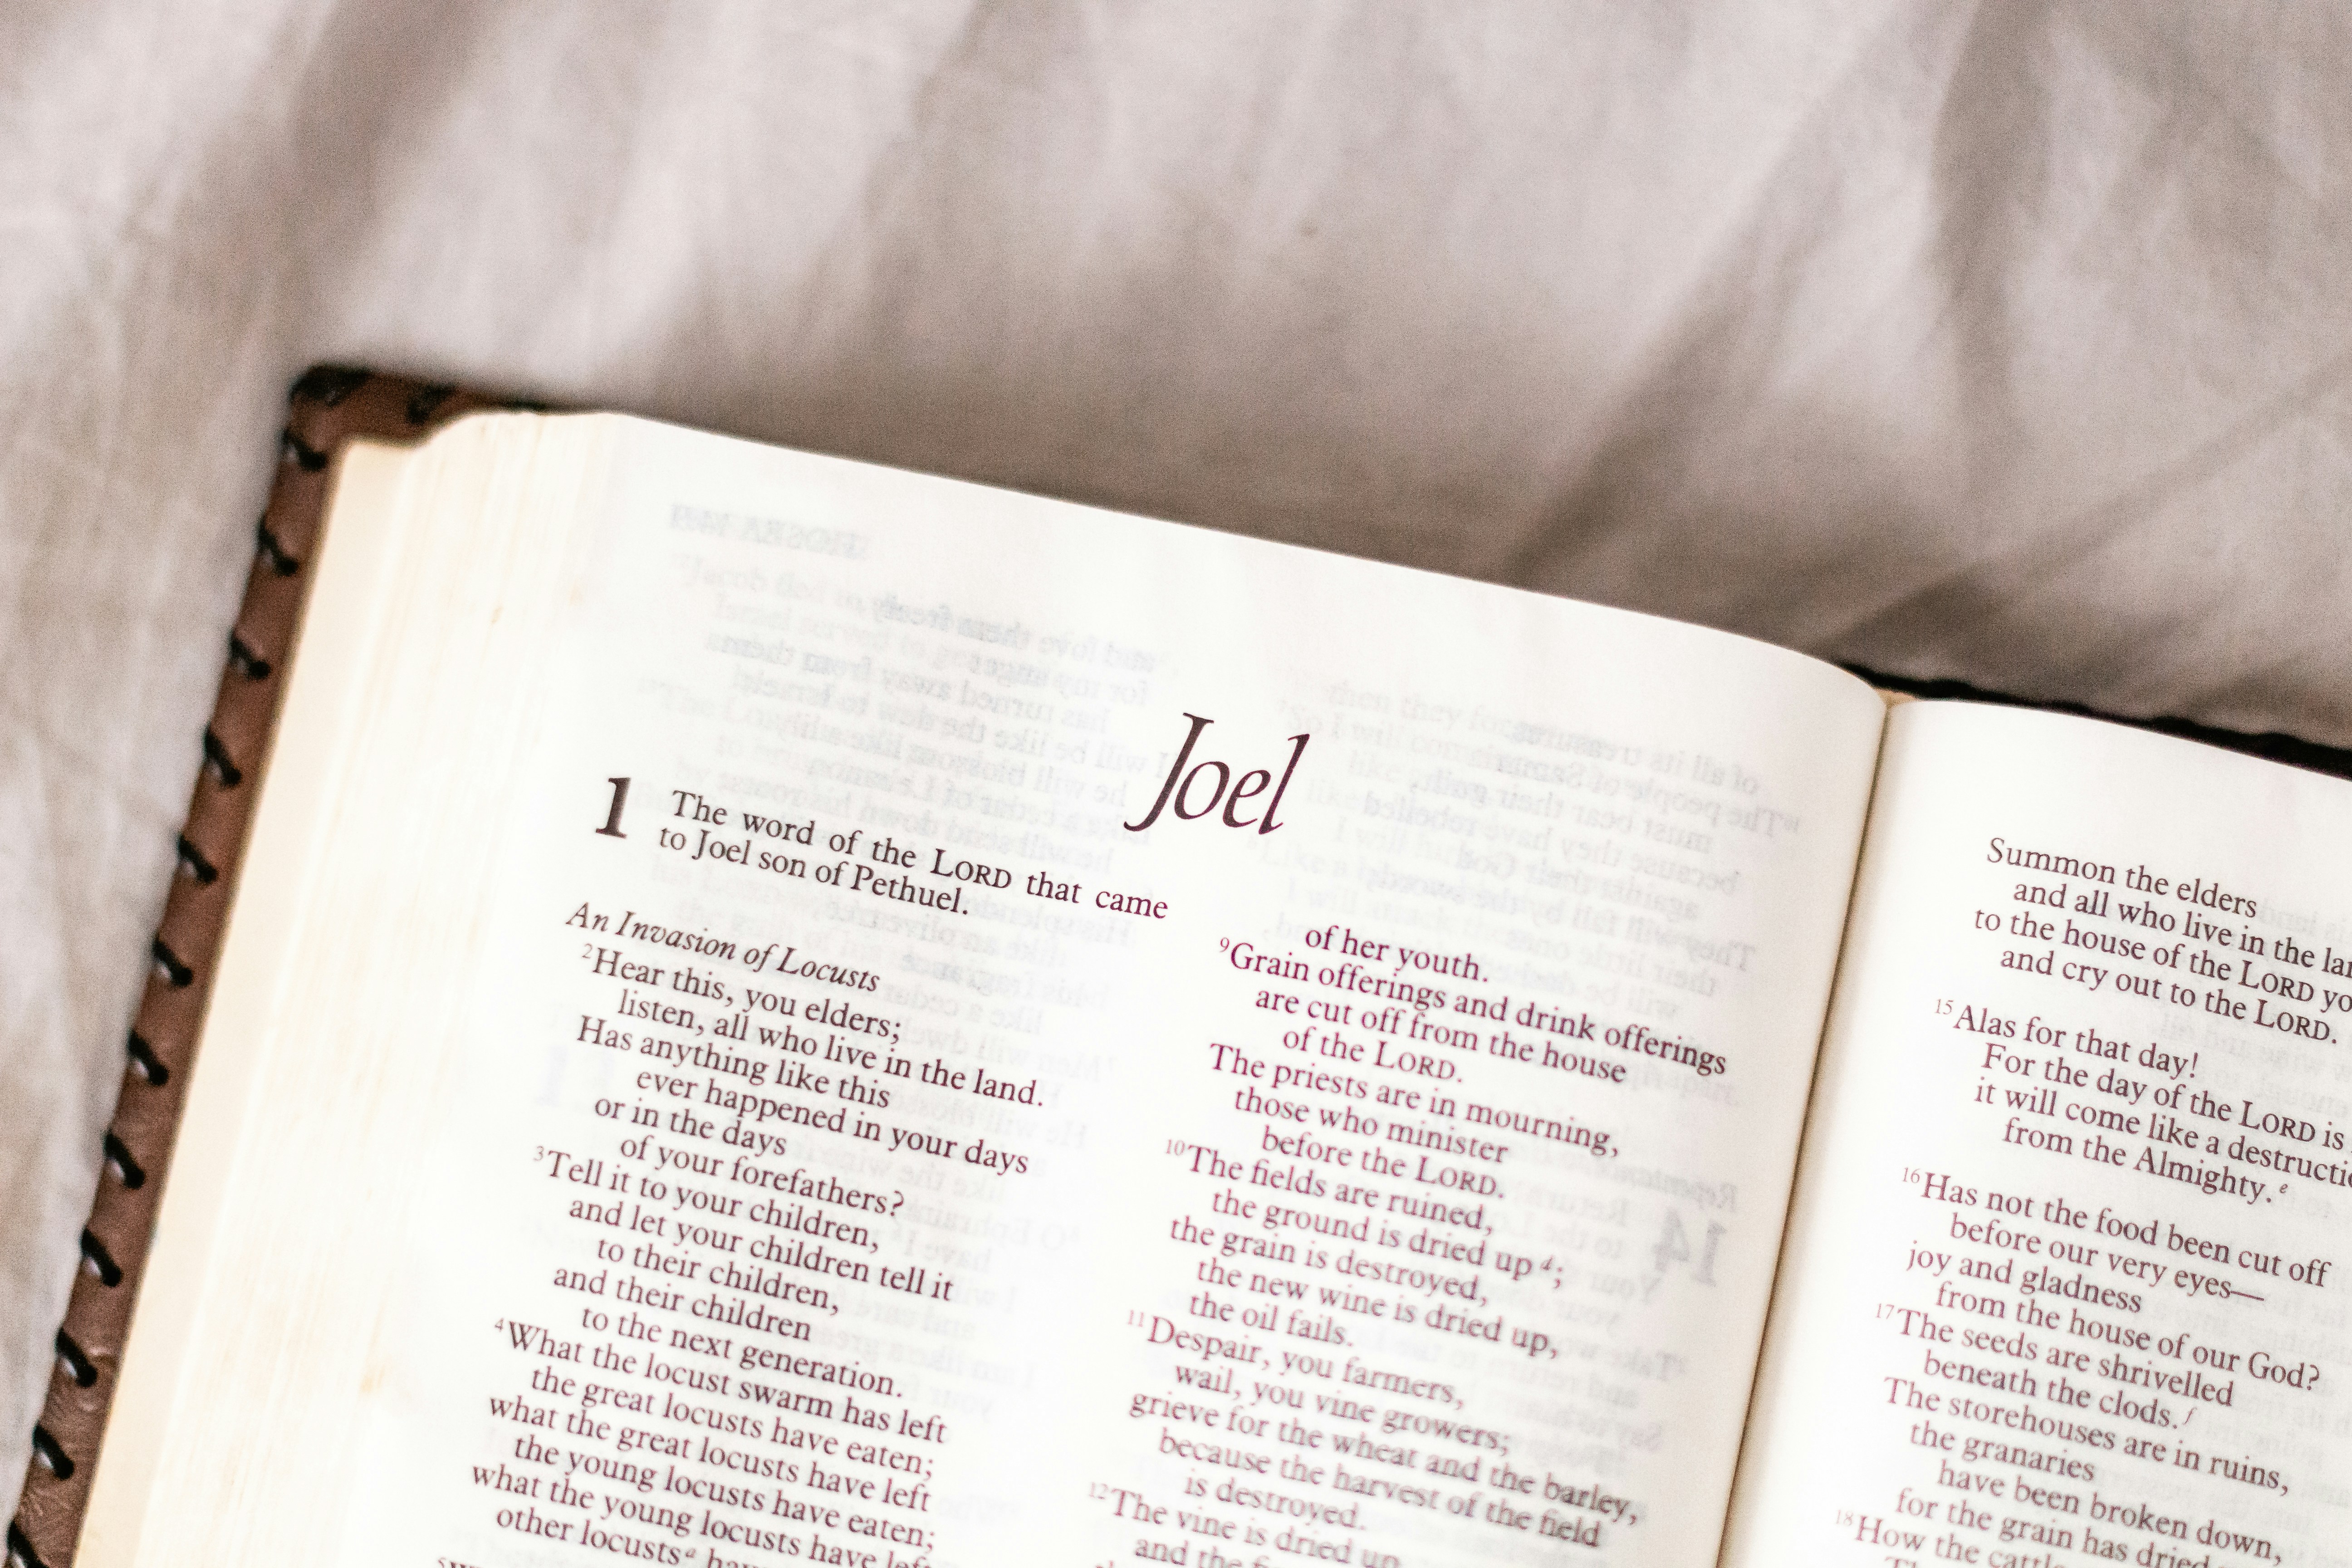 Joel
1 The word of the LORD that came
to Joel son of Pethuel.
An Invasion of Locusts
2Hear this, you elders;
listen, all who live in the land.
Has anything like this
ever happened in your days
or in the days
of your forefathers?
3Tell it to your children,
and let your children tell it
to their children,
and their children
to the next generation.
4What the locust swarm has left
the great locusts have eaten;
what the great locusts have left
the young locusts have eaten;
what the young locusts have left
other locusts a
of her youth.
9Grain offerings and drink offerings
are cut off from the house
of the LORD.
The priests are in mourning,
those who minister
before the LORD.
10The fields are ruined,
the ground is dried up d;
the grain is destroyed,
the new wine is dried up,
the oil fails.
11Despair, you farmers,
wail, you vine growers;
grieve for the wheat and the barley,
because the harvest of the field
is destroyed.
12The vine is dried up
and the
Summon the elders
and all who live in the
to the house of the LORD
and cry out to the LORD.
15Alas for that day!
For the day of the LORD is
it will come like a
from the Almighty. e
16Has not the food been cut off
before our very eyes—
joy and gladness
from the house of our God?
17The seeds are shrivelled
beneath the clods. f
The storehouses are in ruins,
the granaries
have been broken down,
for the grain has dried
18How the cattle